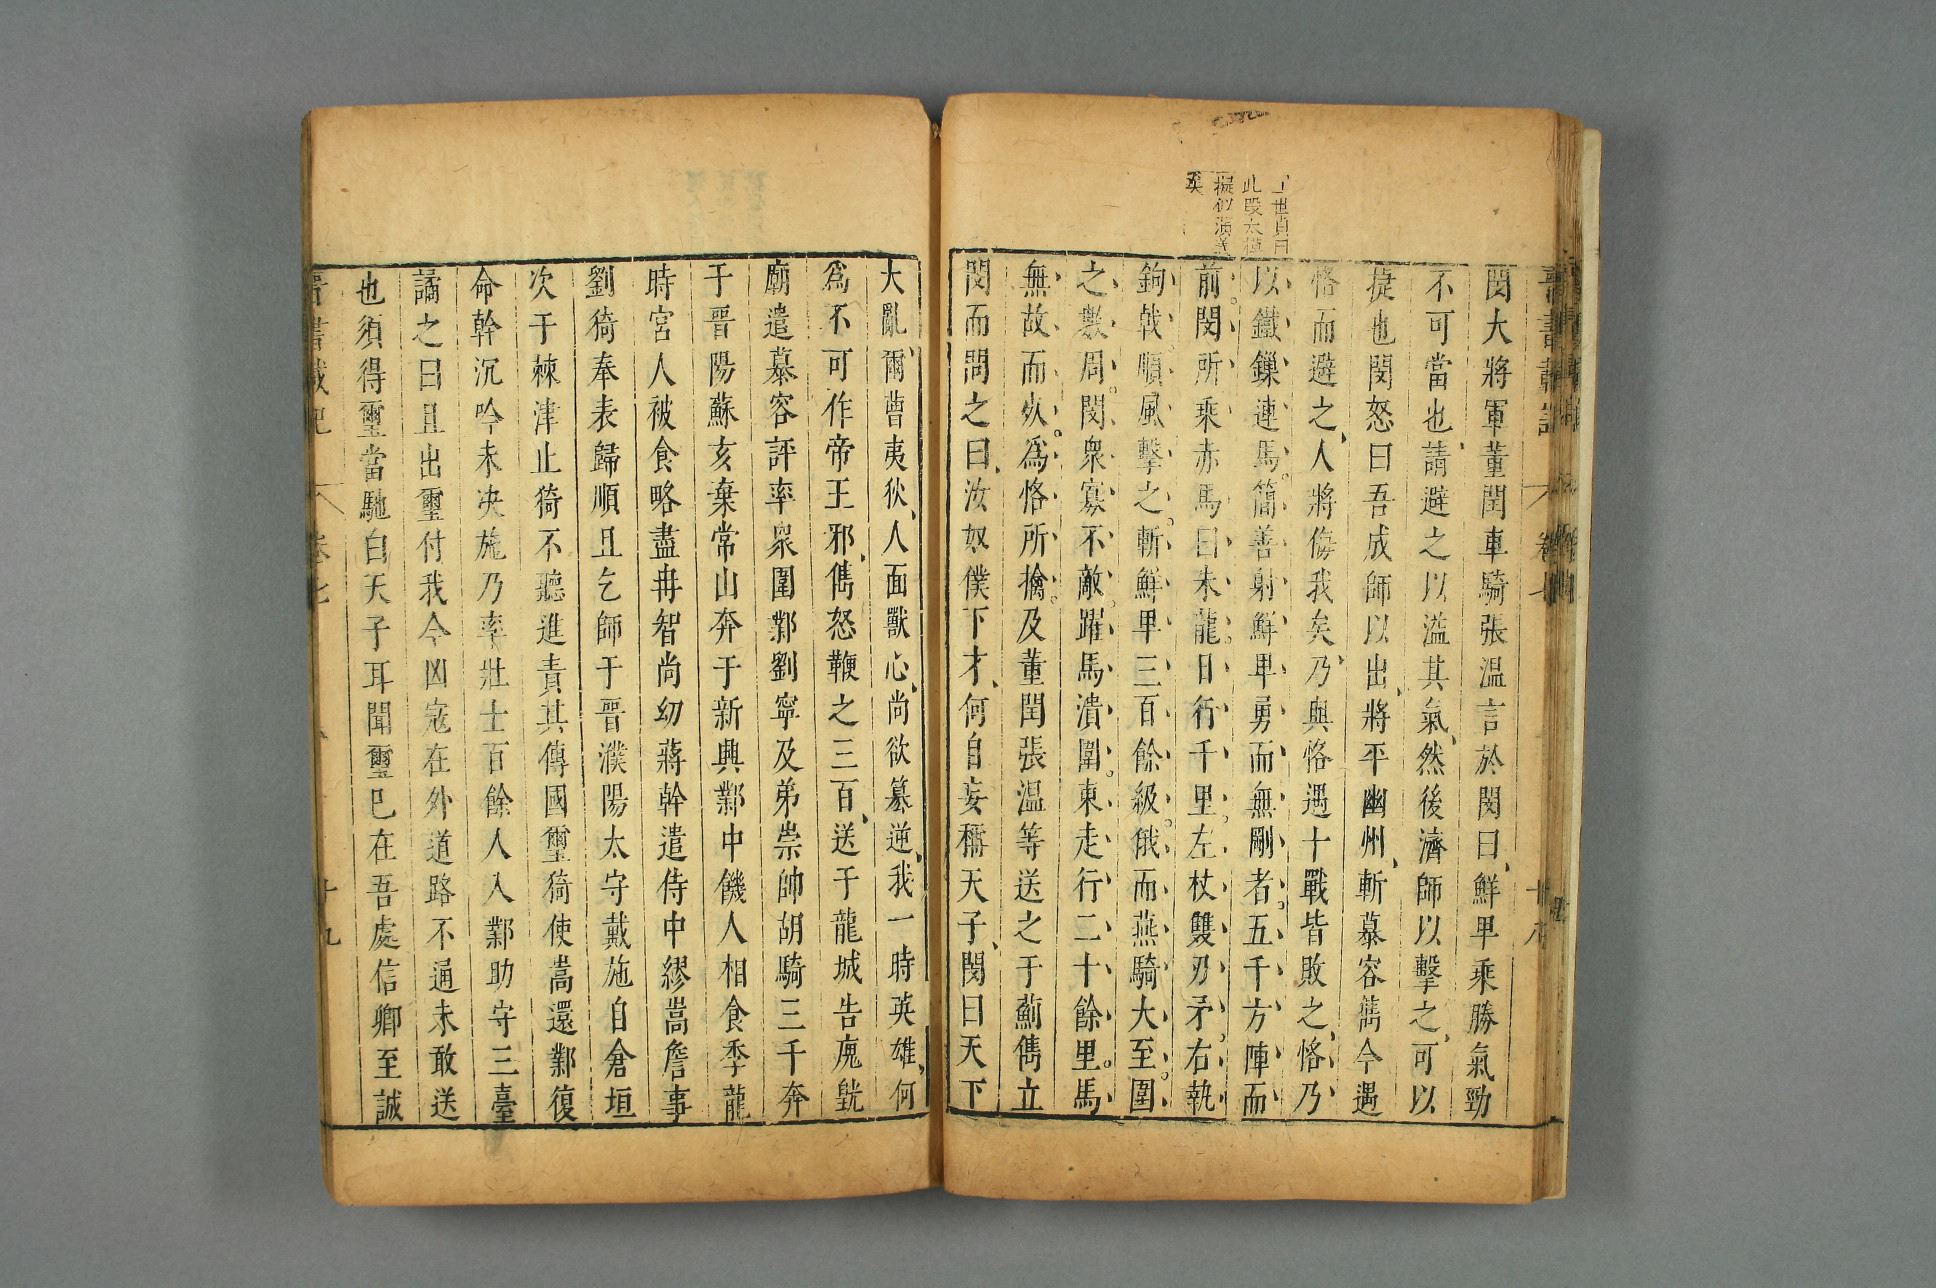 王世貞曰
此段太模
擬似演義
矣
閔大將軍董閏車騎張溫言於閔曰鮮卑乘勝氣勁
不可當也請避之以溢其氣然後濟師以擊之可以
捷也閔怒曰吾成師以出將平幽州斬慕容雋今遇
恪而避之人將侮我矣乃與恪遇十戰皆敗之恪乃
以鐵鏁連馬簡善射鮮卑勇而無剛者五千方陣而
前閔所乘赤馬曰朱龍日行千里左杖雙刃矛右執
鉤戟順風擊之斬鮮卑三百餘級俄而燕騎大至圍
之數周閔衆寡不敵躍馬潰圍東走行二十餘里馬
無故而死爲恪所擒及董閏張溫等送之于薊儁立
閔而問之曰汝奴僕下才何自妄稱天子閔曰天下
大亂爾曹夷狄人面獸心尚欲篡逆我一時英雄何
爲不可作帝王邪儁怒鞭之三百送于龍城告廆皝
廟遣慕容評率衆圍鄴劉寧及弟崇帥胡騎三千奔
于晉陽蘇亥棄常山奔于新興鄴中饑人相食季龍
時宮人被食略盡冉智尚幼蔣幹遣侍中繆嵩詹事
劉猗奉表歸順且乞師于晉濮陽太守戴施自倉垣
次于棘津止猗不聽進責其傳國璽猗使嵩還鄴復
命幹沉吟未決施乃率壯士百餘人入鄴助守三臺
譎之曰且出璽付我今凶寇在外道路不通未敢送
也須得璽當馳白天子耳聞璽已在吾處信卿至誠
晉書載記 卷七 十九